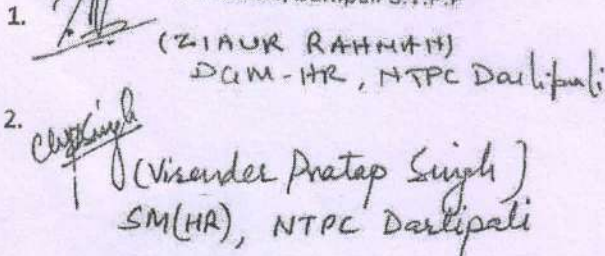 1.
(ZIAUR RAHMAN)
DGM-HR, NTPC Darlipali
2.
(Virender Pratap Singh)
SM(HR), NTPC Darlipali